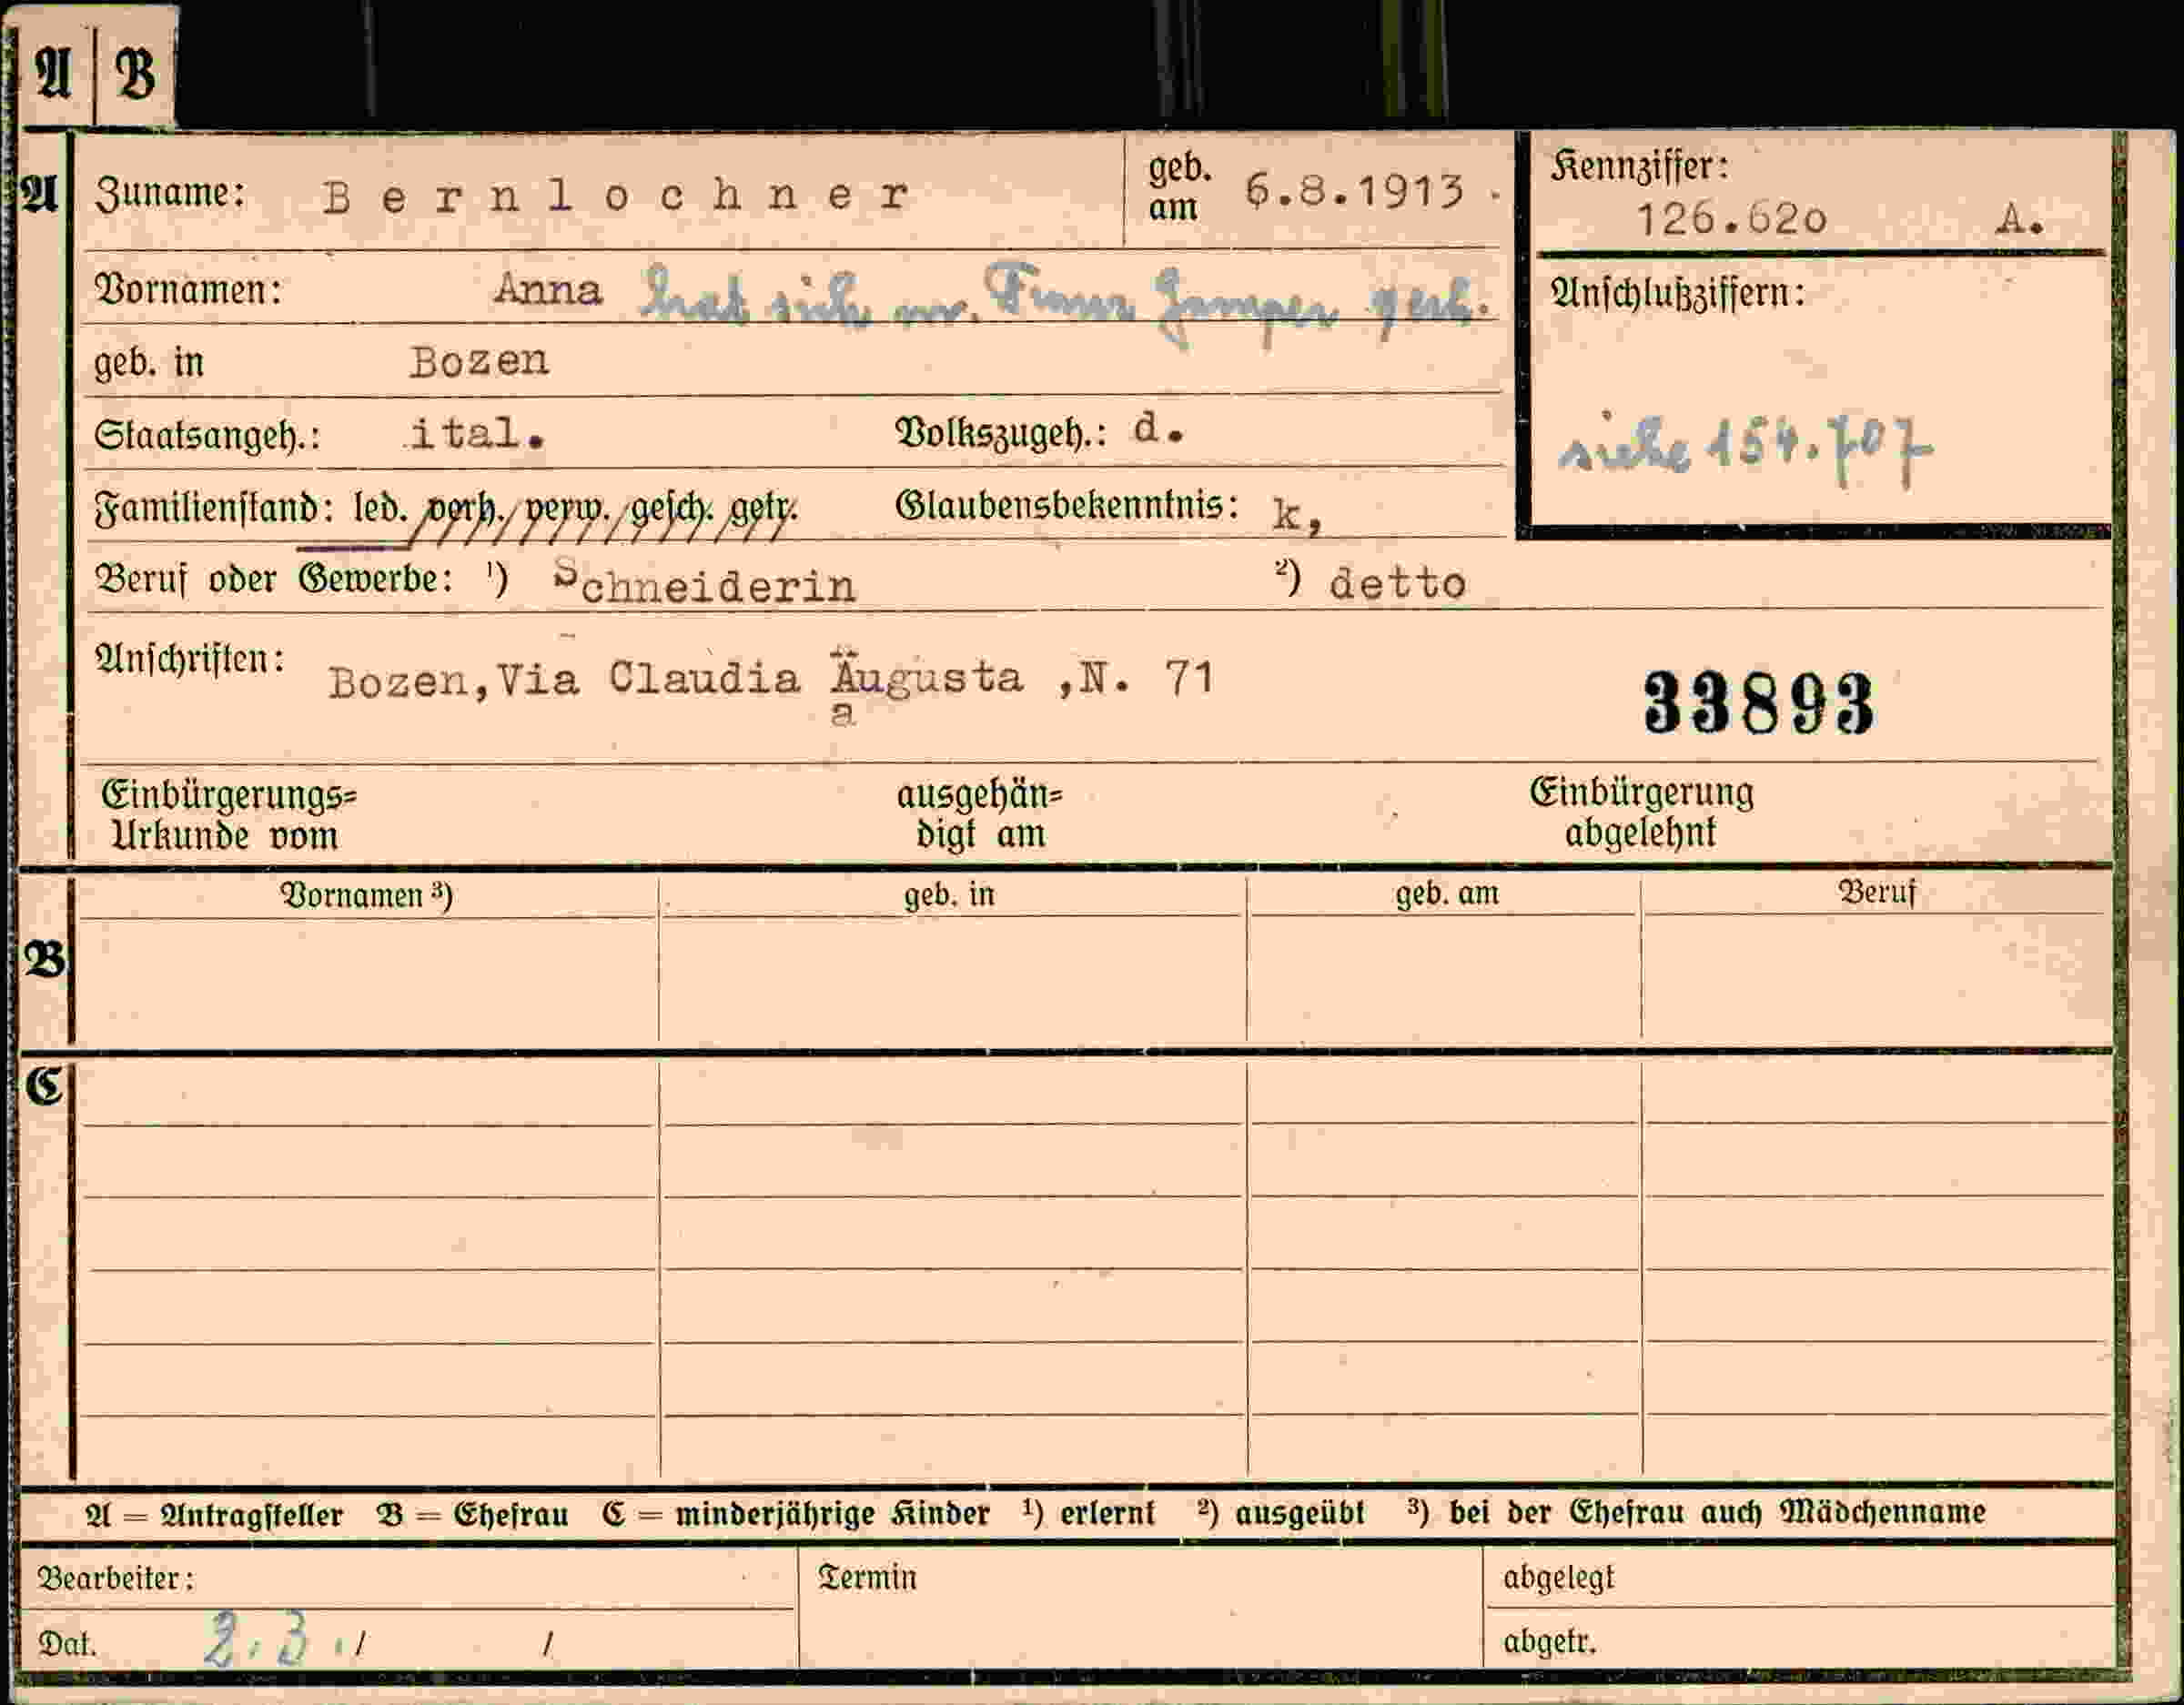 A B
A
Zuname: Bernlochner geb. am 6.8.1913. Kennziffer:
126.620 A.
Vornamen: Anna hat sich m. Franz gesch. Anschlußziffern:
geb. in Bozen
Staatsangeh.: ital. Volkszugeh.: d. siehe 154.707
Familienstand: led. verh. verw. gesch. getr. Glaubensbekenntnis: k,
Beruf oder Gewerbe: ¹) Schneiderin ²) detto
Anschriften: Bozen,Via Claudia Äugusta ,N. 71
a
33893
Einbürgerungs= ausgehän= Einbürgerung
Urkunde vom digt am abgelehnt
Vornamen ³) geb. in geb. am Beruf
B
C
A = Antragsteller B = Ehefrau C = minderjährige Kinder ¹) erlernt ²) ausgeübt ³) bei der Ehefrau auch Mädchenname
Bearbeiter: Termin abgelegt
Dat. 2.3./ / abgetr.